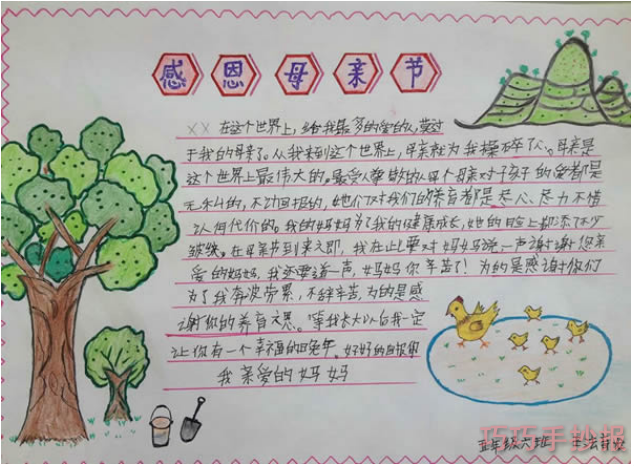 感恩母亲节
XX 在这个世界上,给我最多的爱的人,莫过
于我的母亲了。从我来到这个世界上,母亲就为我操碎了心。母亲是
这个世界上最伟大的,最受人尊敬的人。每个母亲对子孩子的爱都是
无私的,不对回报的,她们对我们的养育都是尽心、尽力不惜
任何代价的。我的妈妈为了我的健康成长,她的脸上都添了不少
皱纹。在母亲节到来之即,我在此要对妈妈说一声谢谢您亲
爱的妈妈,我还要道一声,妈妈你辛苦了!为的是感谢你们
为了我奔波劳累,不辞辛苦,为的是感
谢你的养育之恩。等我长大以后我一定
让你有一个幸福的晚年。好好的回报
我亲爱的妈妈
五年级六班
巧巧手抄报